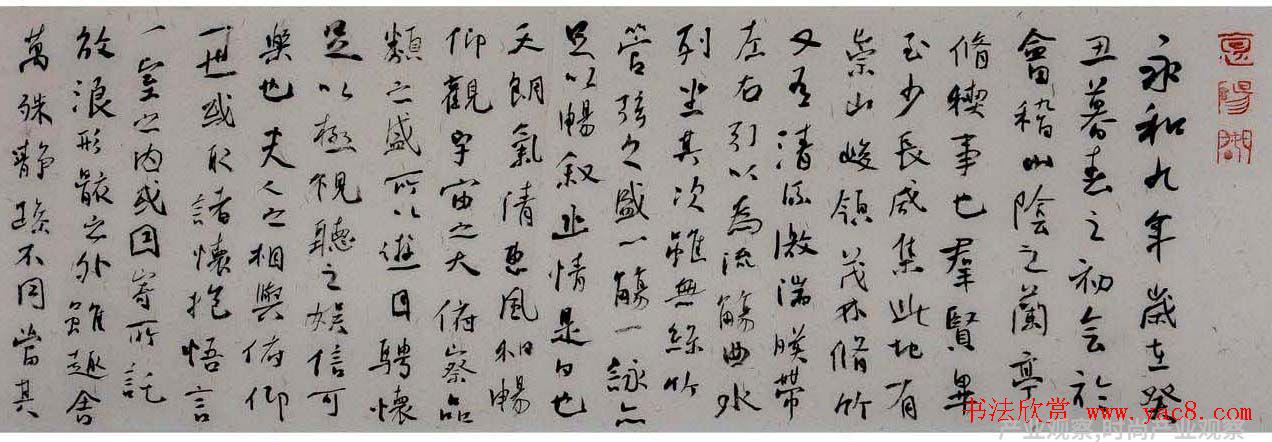 永和九年歲在癸
丑暮春之初会於
會稽山陰之蘭亭
脩稧事也羣賢畢
至少長咸集此地有
崇山峻領茂林脩竹
又有清流激湍暎帶
左右引以為流觴曲水
列坐其次雖無絲竹
管弦之盛一觴一詠亦
足以暢叙幽情是日也
天朗氣清惠風和暢
仰觀宇宙之大俯察品
類之盛所以遊目騁懷
足以極視聽之娛信可
樂也夫人之相與俯仰
一世或取諸懷抱悟言
一室之内或因寄所託
放浪形骸之外雖趣舍
萬殊靜躁不同當其
书法欣赏 www.yac8.com
产业观察,时尚产业观察